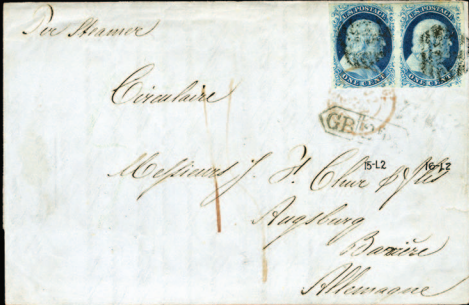 Per Steamer
U.S. POSTAGE
ONE CENT
U.S. POSTAGE
ONE CENT
Circulaire
GB
15-L2
16-L2
Messieurs J. F. & fils
Augsburg
Bavière
Allemagne